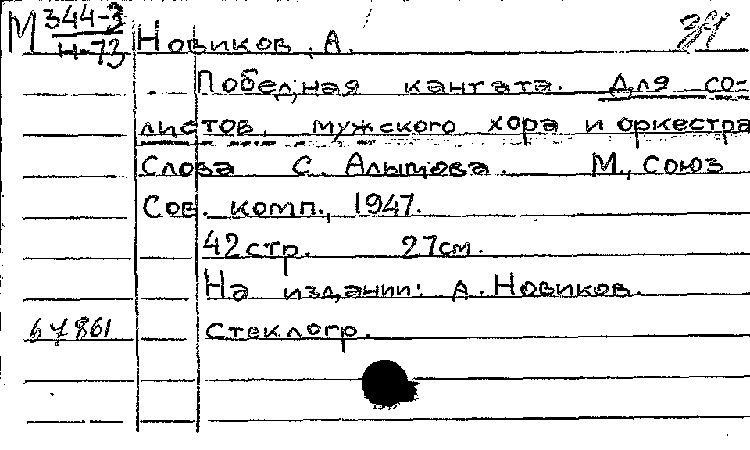 М 344-3
Н-73
Новиков, А.
34
Победная кантата. Для со-
листов, мужского хора и оркестра
Слова С. Алымова. М., Союз
Сов. комп., 1947.
42 стр. 27 см.
На издании: А. Новиков.
67861 Стеклогр.